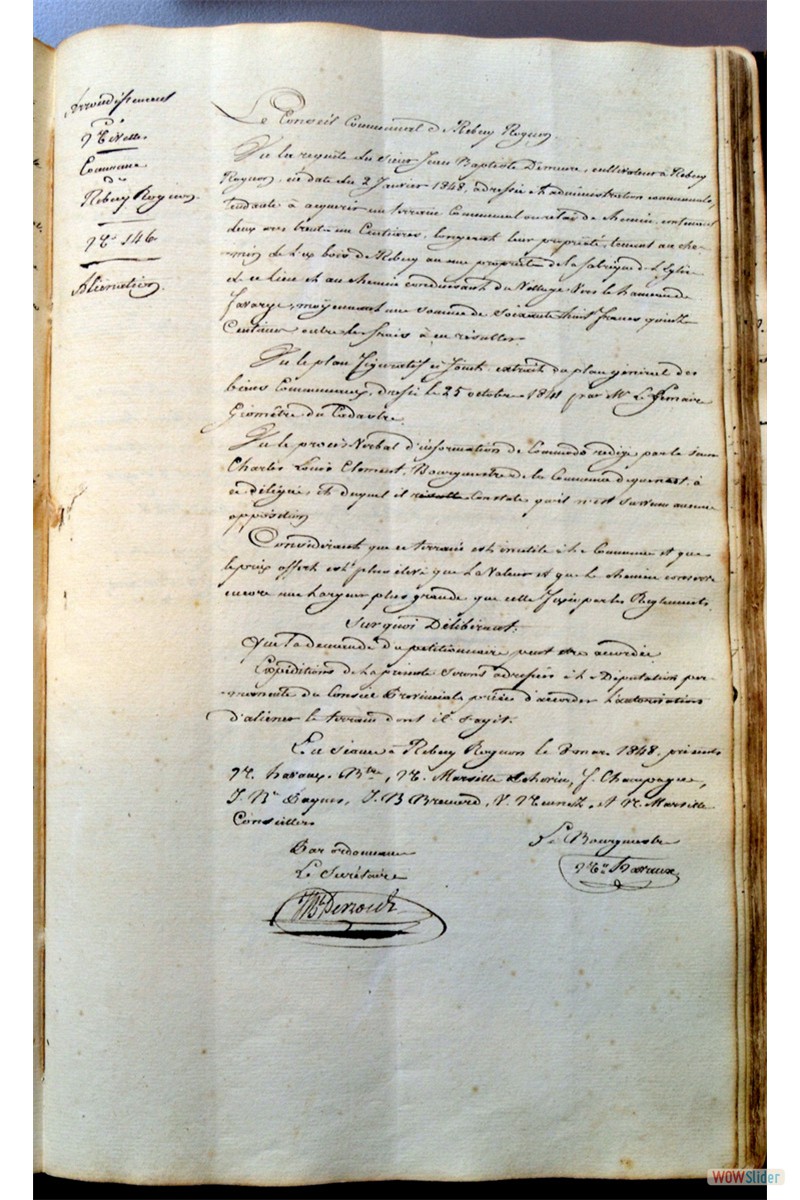 Arrondissement
de
Nivelles
Commune
de
Rebecq Rognon
N° 146
Aliénation
Le Conseil Communal de Rebecq Rognon
Vu la requête du Sieur Jean Baptiste Demeure, cultivateur à Rebecq
Rognon, en date du 2 Janvier 1848, adressée à l'administration communale,
tendante à acquérir un terrain Communal ou restant de chemin, contenant
deux ares trente un Centiares, longeant leur propriété, tenant au che-
min de aux bois de Rebecq au une propriété de la fabrique de l'Eglise
de ce lieu et au chemin conduisant du Village vers le hameau de
moyennant une somme de Soixante huit francs quinze
Centimes outre les frais à en résulter
Vu le plan figuratif ci joint, extrait du plan général des
biens Communaux, dressé le 25 octobre 1841 par Mr Le Lemaire
Géomètre du Cadastre.
Vu le procès Verbal d'information de Commodo rédigé par le Sieur
Charles Louis Clement, Bourgmestre de la Commune de quenast, à
ce délégué et duquel il résulte Constate qu'il n'est survenu aucune
opposition
Considérant que ce terrain est inutile à la Commune et que
le prix offert est plus élevé que la Valeur et que le chemin conserve
encore une largeur plus grande que celle fixée par les Règlements.
Sur quoi Délibérant:
Que la demande du pétitionnaire peut être accordée
Expéditions de la présente seront adressées à la Députation per-
manente du Conseil Provincial priée d'accorder l'autorisation
d'aliéner le terrain dont il s'agit.
En séance à Rebecq Rognon le 8 mar. 1848, présents
N. havaux. Btre, N. Marseille F. Champagne,
J. Bte Paquet, J. B. N. Marseille
Conseillers
Par ordonnance
Le Secrétaire
Le Bourgmestre
Nas Havaux
WOWSlider